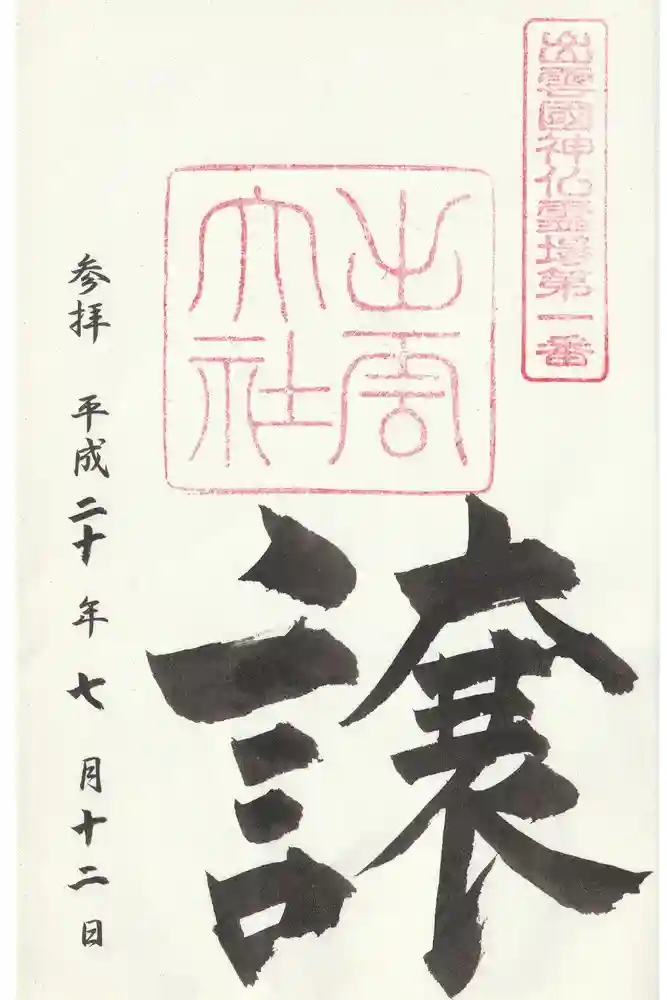 出雲國神仏霊場第一番
出雲
大社
譲
参拝 平成二十年七月十二日